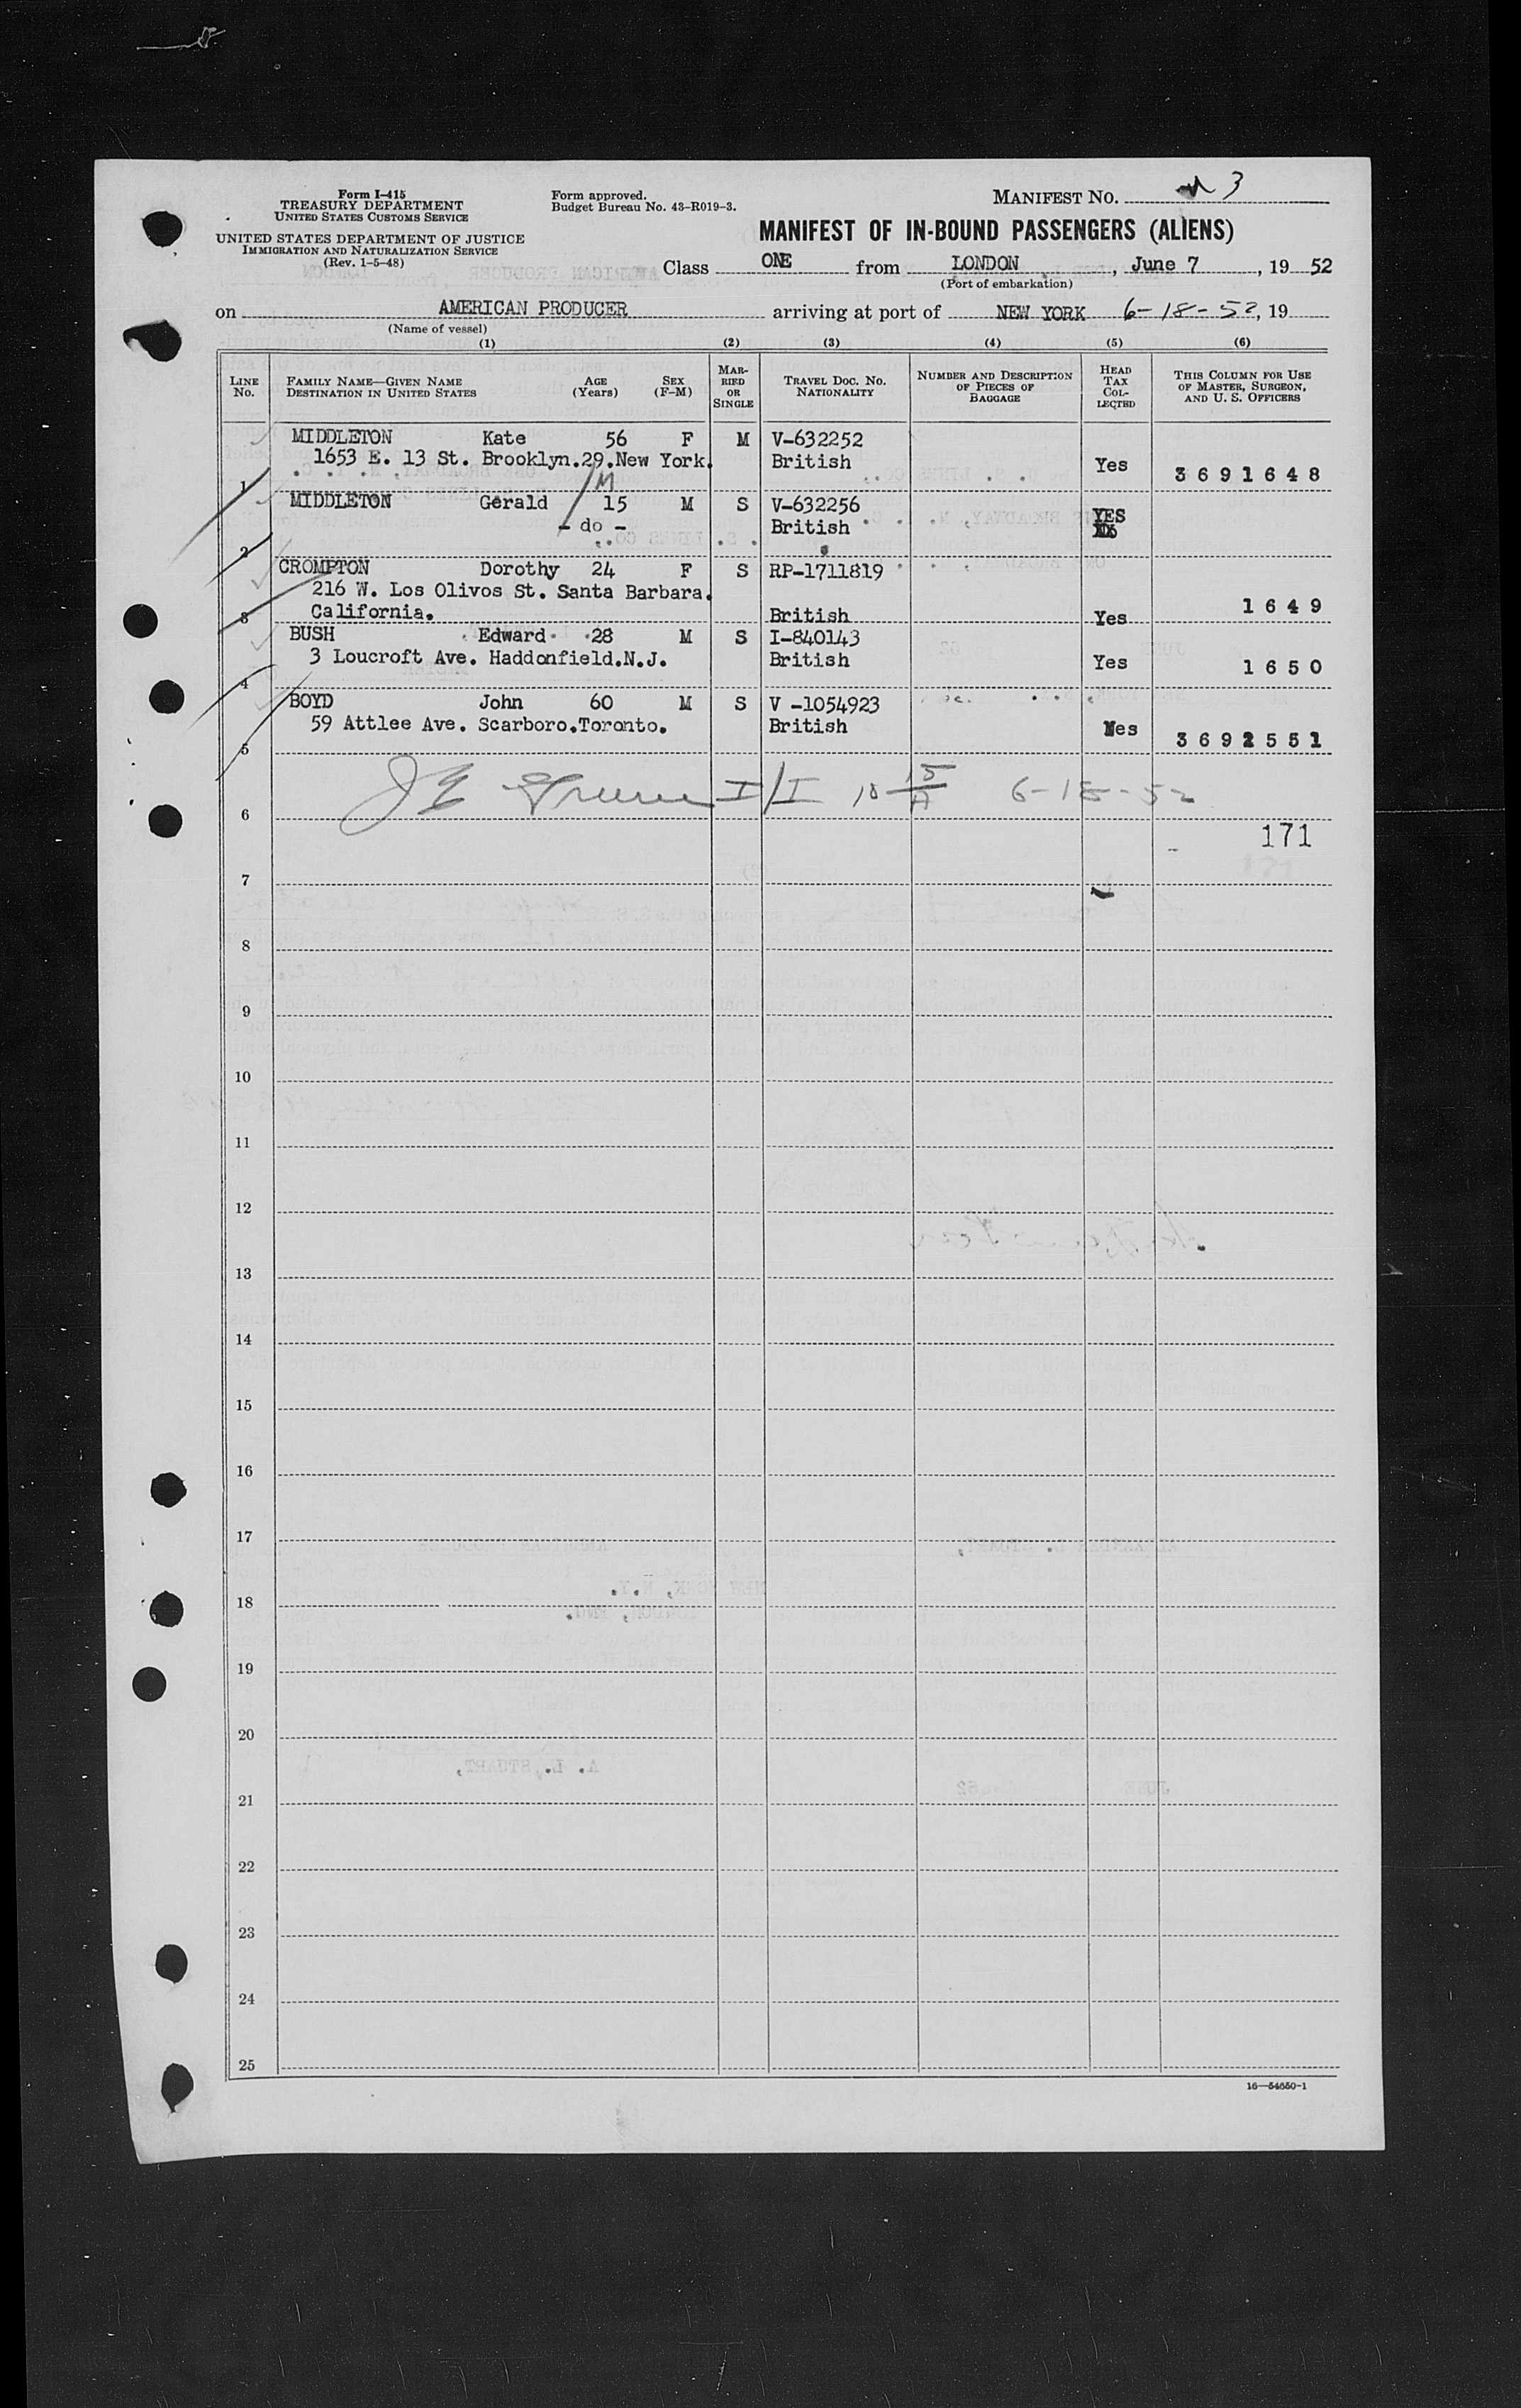 Form I-415
TREASURY DEPARTMENT
UNITED STATES CUSTOMS SERVICE
UNITED STATES DEPARTMENT OF JUSTICE
IMMIGRATION AND NATURALIZATION SERVICE
(Rev. 1-5-48)
Form approved.
Budget Bureau No. 43-R019-3.
MANIFEST NO. 3
MANIFEST OF IN-BOUND PASSENGERS (ALIENS)
Class ONE from LONDON, June 7, 19 52
(Port of embarkation)
on AMERICAN PRODUCER arriving at port of NEW YORK 6-18-52, 19
(Name of vessel)
(1) (2) (3) (4) (5) (6)
LINE NO. FAMILY NAME—GIVEN NAME DESTINATION IN UNITED STATES AGE (Years) SEX (F-M) MARRIED OR SINGLE TRAVEL DOC. NO. NATIONALITY NUMBER AND DESCRIPTION OF PIECES OF BAGGAGE HEAD TAX COLLECTED THIS COLUMN FOR USE OF MASTER, SURGEON, AND U. S. OFFICERS
MIDDLETON Kate 56 F M V-632252
1 1653 E. 13 St. Brooklyn.29.New York. British Yes 3691648
MIDDLETON Gerald 15 M S V-632256 YES
2 - do - British
CROMPTON Dorothy 24 F S RP-1711819
216 W. Los Olivos St. Santa Barbara.
3 California. British Yes 1649
BUSH Edward 28 M S I-840143
4 3 Loucroft Ave. Haddonfield.N.J. British Yes 1650
BOYD John 60 M S V -1054923
5 59 Attlee Ave. Scarboro.Toronto. British Yes 3692551
I/I 10 15/A 6-18-52
6
171
7
8
9
10
11
12
13
14
15
16
17
18
19
20
21
22
23
24
25
16—54650-1